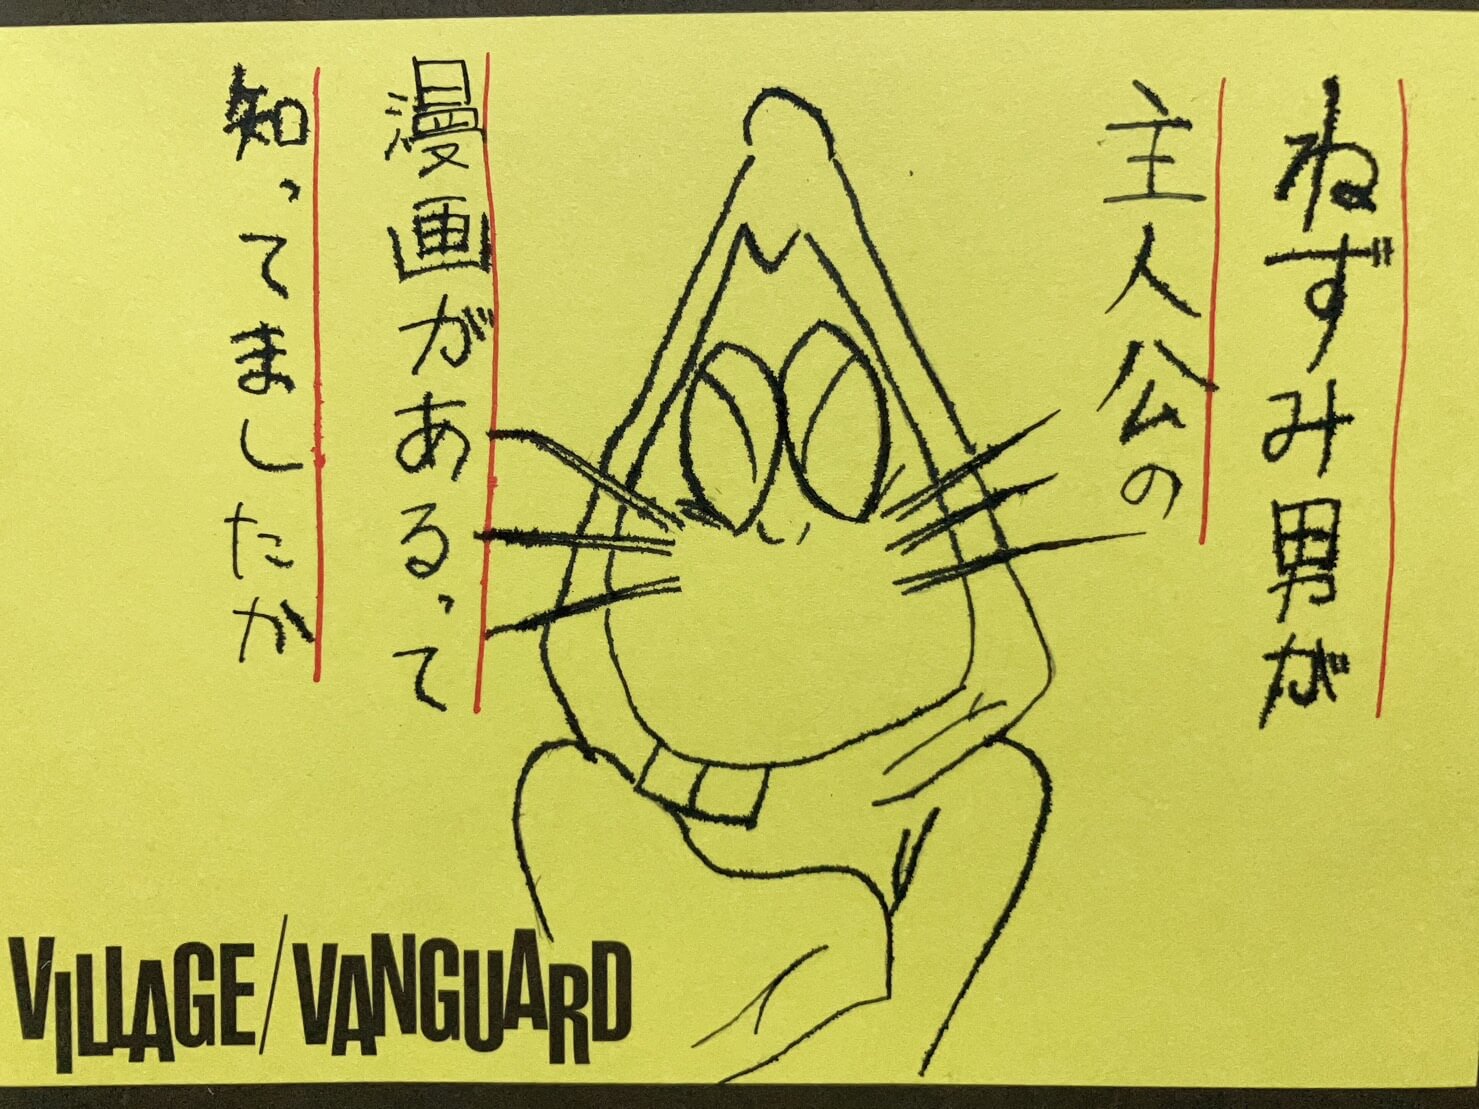 ねずみ男が
主人公の
漫画があるって
知ってましたか
VILLAGE/VANGUARD